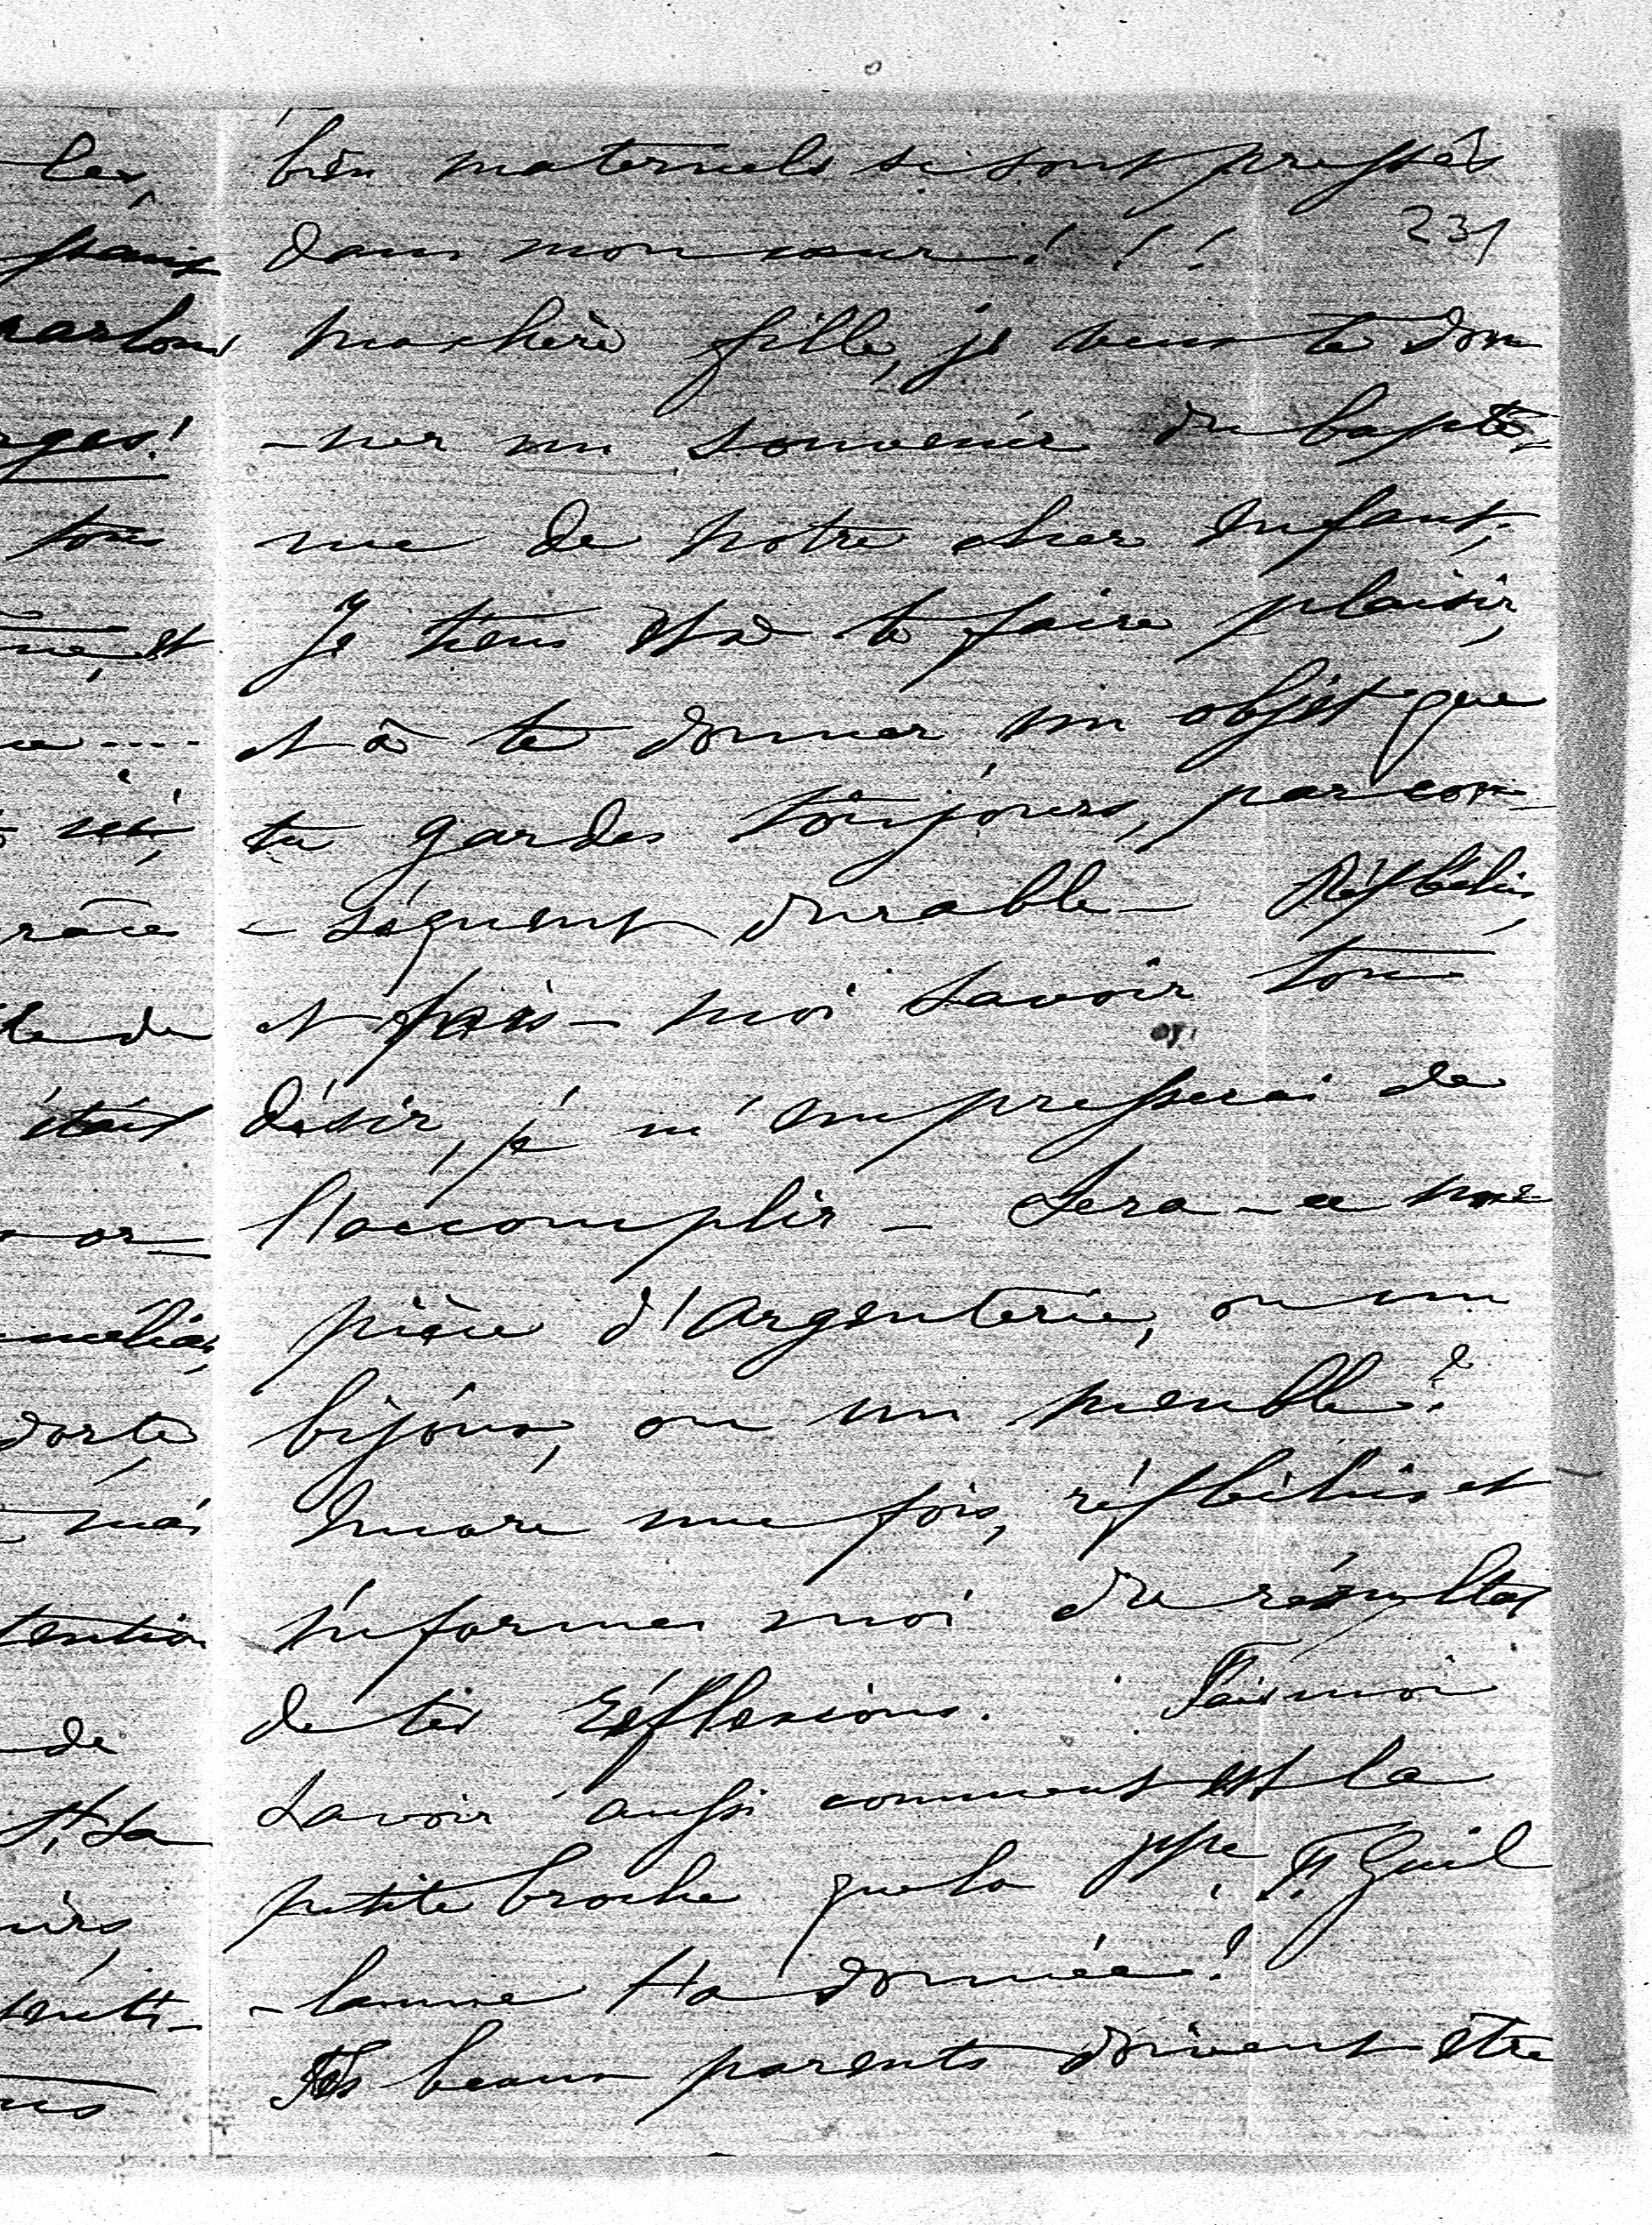 bien maternels se sont pressés
dans mon cœur ! ! !
231
ma chère fille, je veux te don
-ner un souvenir du baptê-
me de notre cher Enfant,
Je tiens et à te faire plaisir,
et à te donner un objet que
tu gardes toujours, par con-
-séquent durable - Réfléchis,
et fais-moi savoir ton
désir, je m'empresserai de
l'accomplir - Sera-ce une
pièce d'argenterie, ou un
bijoux, ou un meuble ?
Encore une fois, réfléchis et
informes moi du résultat
de tes réflexions. Fais moi
savoir aussi comment est la
petite broche que la Guil
-laume t'a donnée ?
Tes beaux parents doivent être
les
tous
et
ici,
grâce
de
était
or-
sorte
moi
tention
de